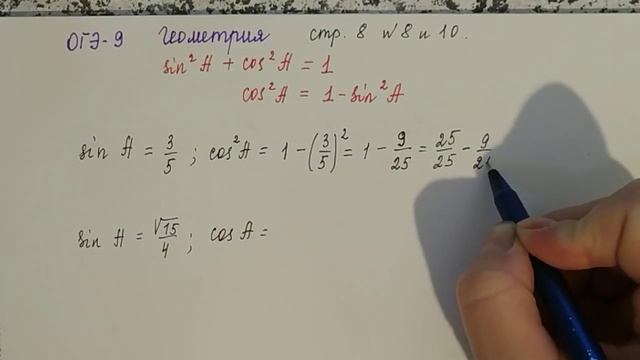 ОГЭ-9 Геометрия стр. 8 №8 и 10.
sin²A + cos²A = 1
cos²A = 1 - sin²A
sin A = 3/5 ; cos²A = 1 - (3/5)² = 1 - 9/25 = 25/25 - 9/25
sin A = √15/4 ; cos A =